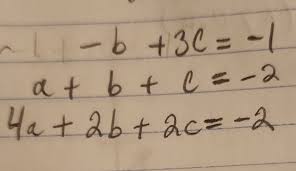 -b + 3c = -1
a + b + c = -2
4a + 2b + 2c = -2